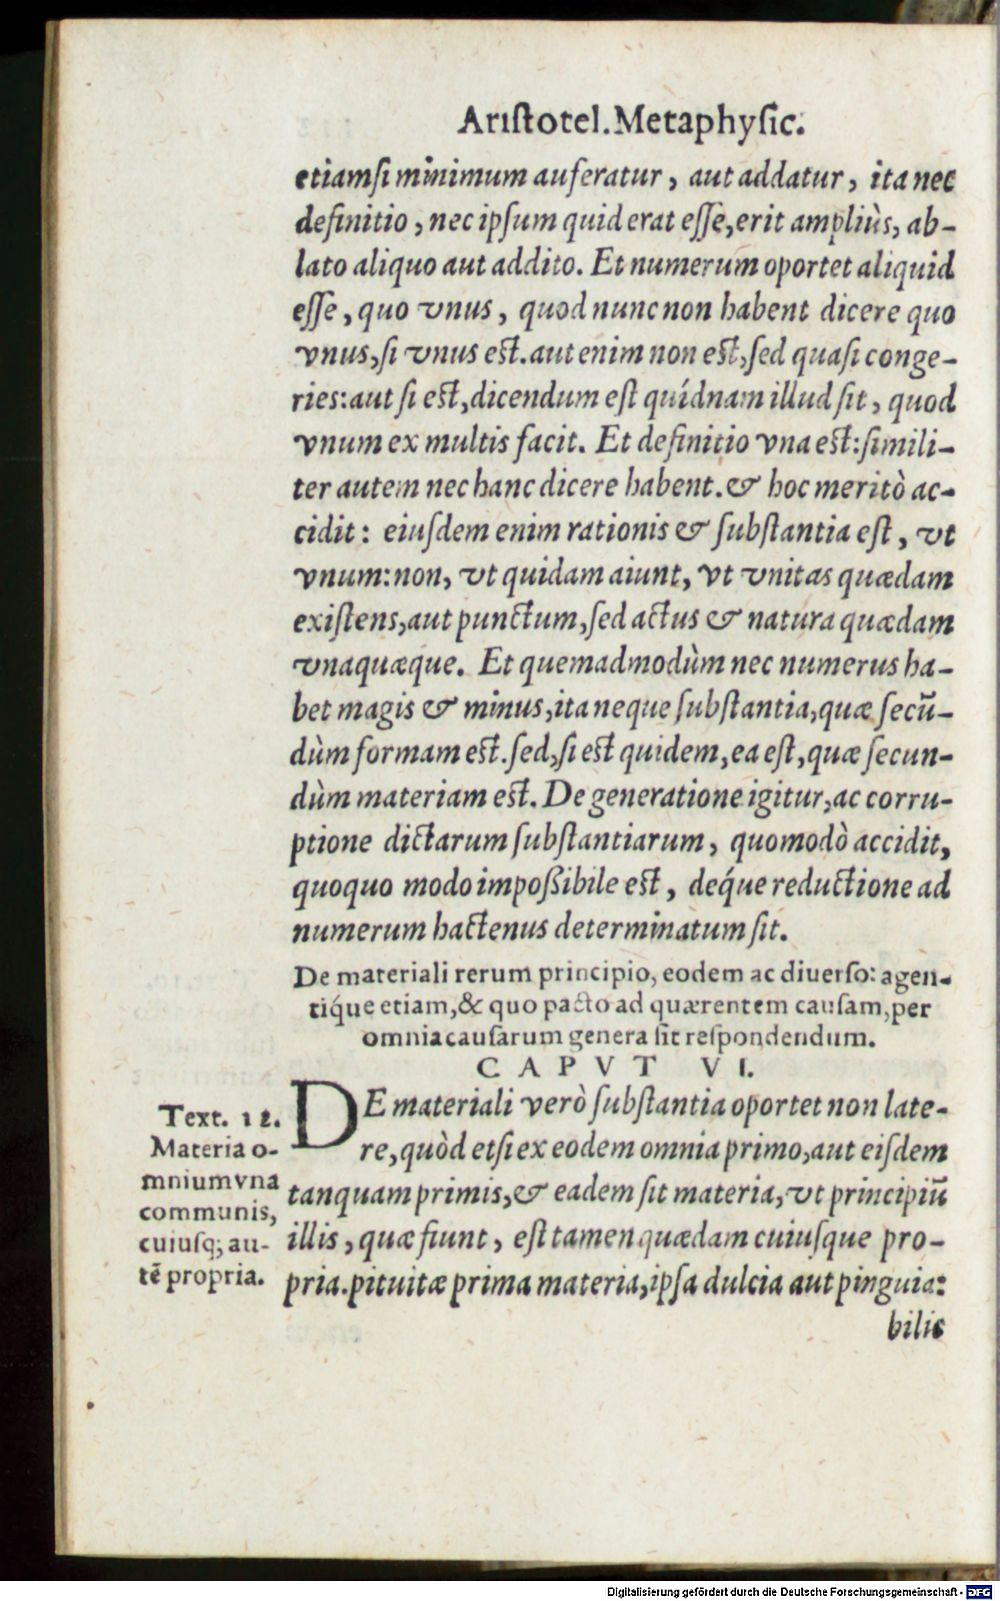 Aristotel. Metaphysic.
etiamsi minimum auferatur, aut addatur, ita nec
definitio, nec ipsum quid erat esse, erit ampliùs, ab-
lato aliquo aut addito. Et numerum oportet aliquid
esse, quo vnus, quod nunc non habent dicere quo
vnus, si vnus est. aut enim non est, sed quasi conge-
ries: aut si est, dicendum est quídnam illud sit, quod
vnum ex multis facit. Et definitio vna est: simili-
ter autem nec hanc dicere habent. & hoc meritò ac-
cidit: eiusdem enim rationis & substantia est, vt
vnum: non, vt quidam aiunt, vt vnitas quædam
existens, aut punctum, sed actus & natura quædam
vnaquæque. Et quemadmodùm nec numerus ha-
bet magis & minus, ita neque substantia, quæ secū-
dùm formam est. sed, si est quidem, ea est, quæ secun-
dùm materiam est. De generatione igitur, ac corru-
ptione dictarum substantiarum, quomodò accidit,
quoquo modo impoßibile est, deq́ue reductione ad
numerum hactenus determinatum sit.
De materiali rerum principio, eodem ac diuerso: agen-
tiq́ue etiam, & quo pacto ad quærentem causam, per
omnia causarum genera sit respondendum.
CAPVT VI.
DE materiali verò substantia oportet non late-
re, quòd etsi ex eodem omnia primo, aut eisdem
tanquam primis, & eadem sit materia, vt principiū
illis, quæ fiunt, est tamen quædam cuiusque pro-
pria. pituitæ prima materia, ipsa dulcia aut pinguia:
bilis
Text. 12.
Materia o-
mnium vna
communis,
cuiusq; au-
tē propria.
Digitalisierung gefördert durch die Deutsche Forschungsgemeinschaft - DFG